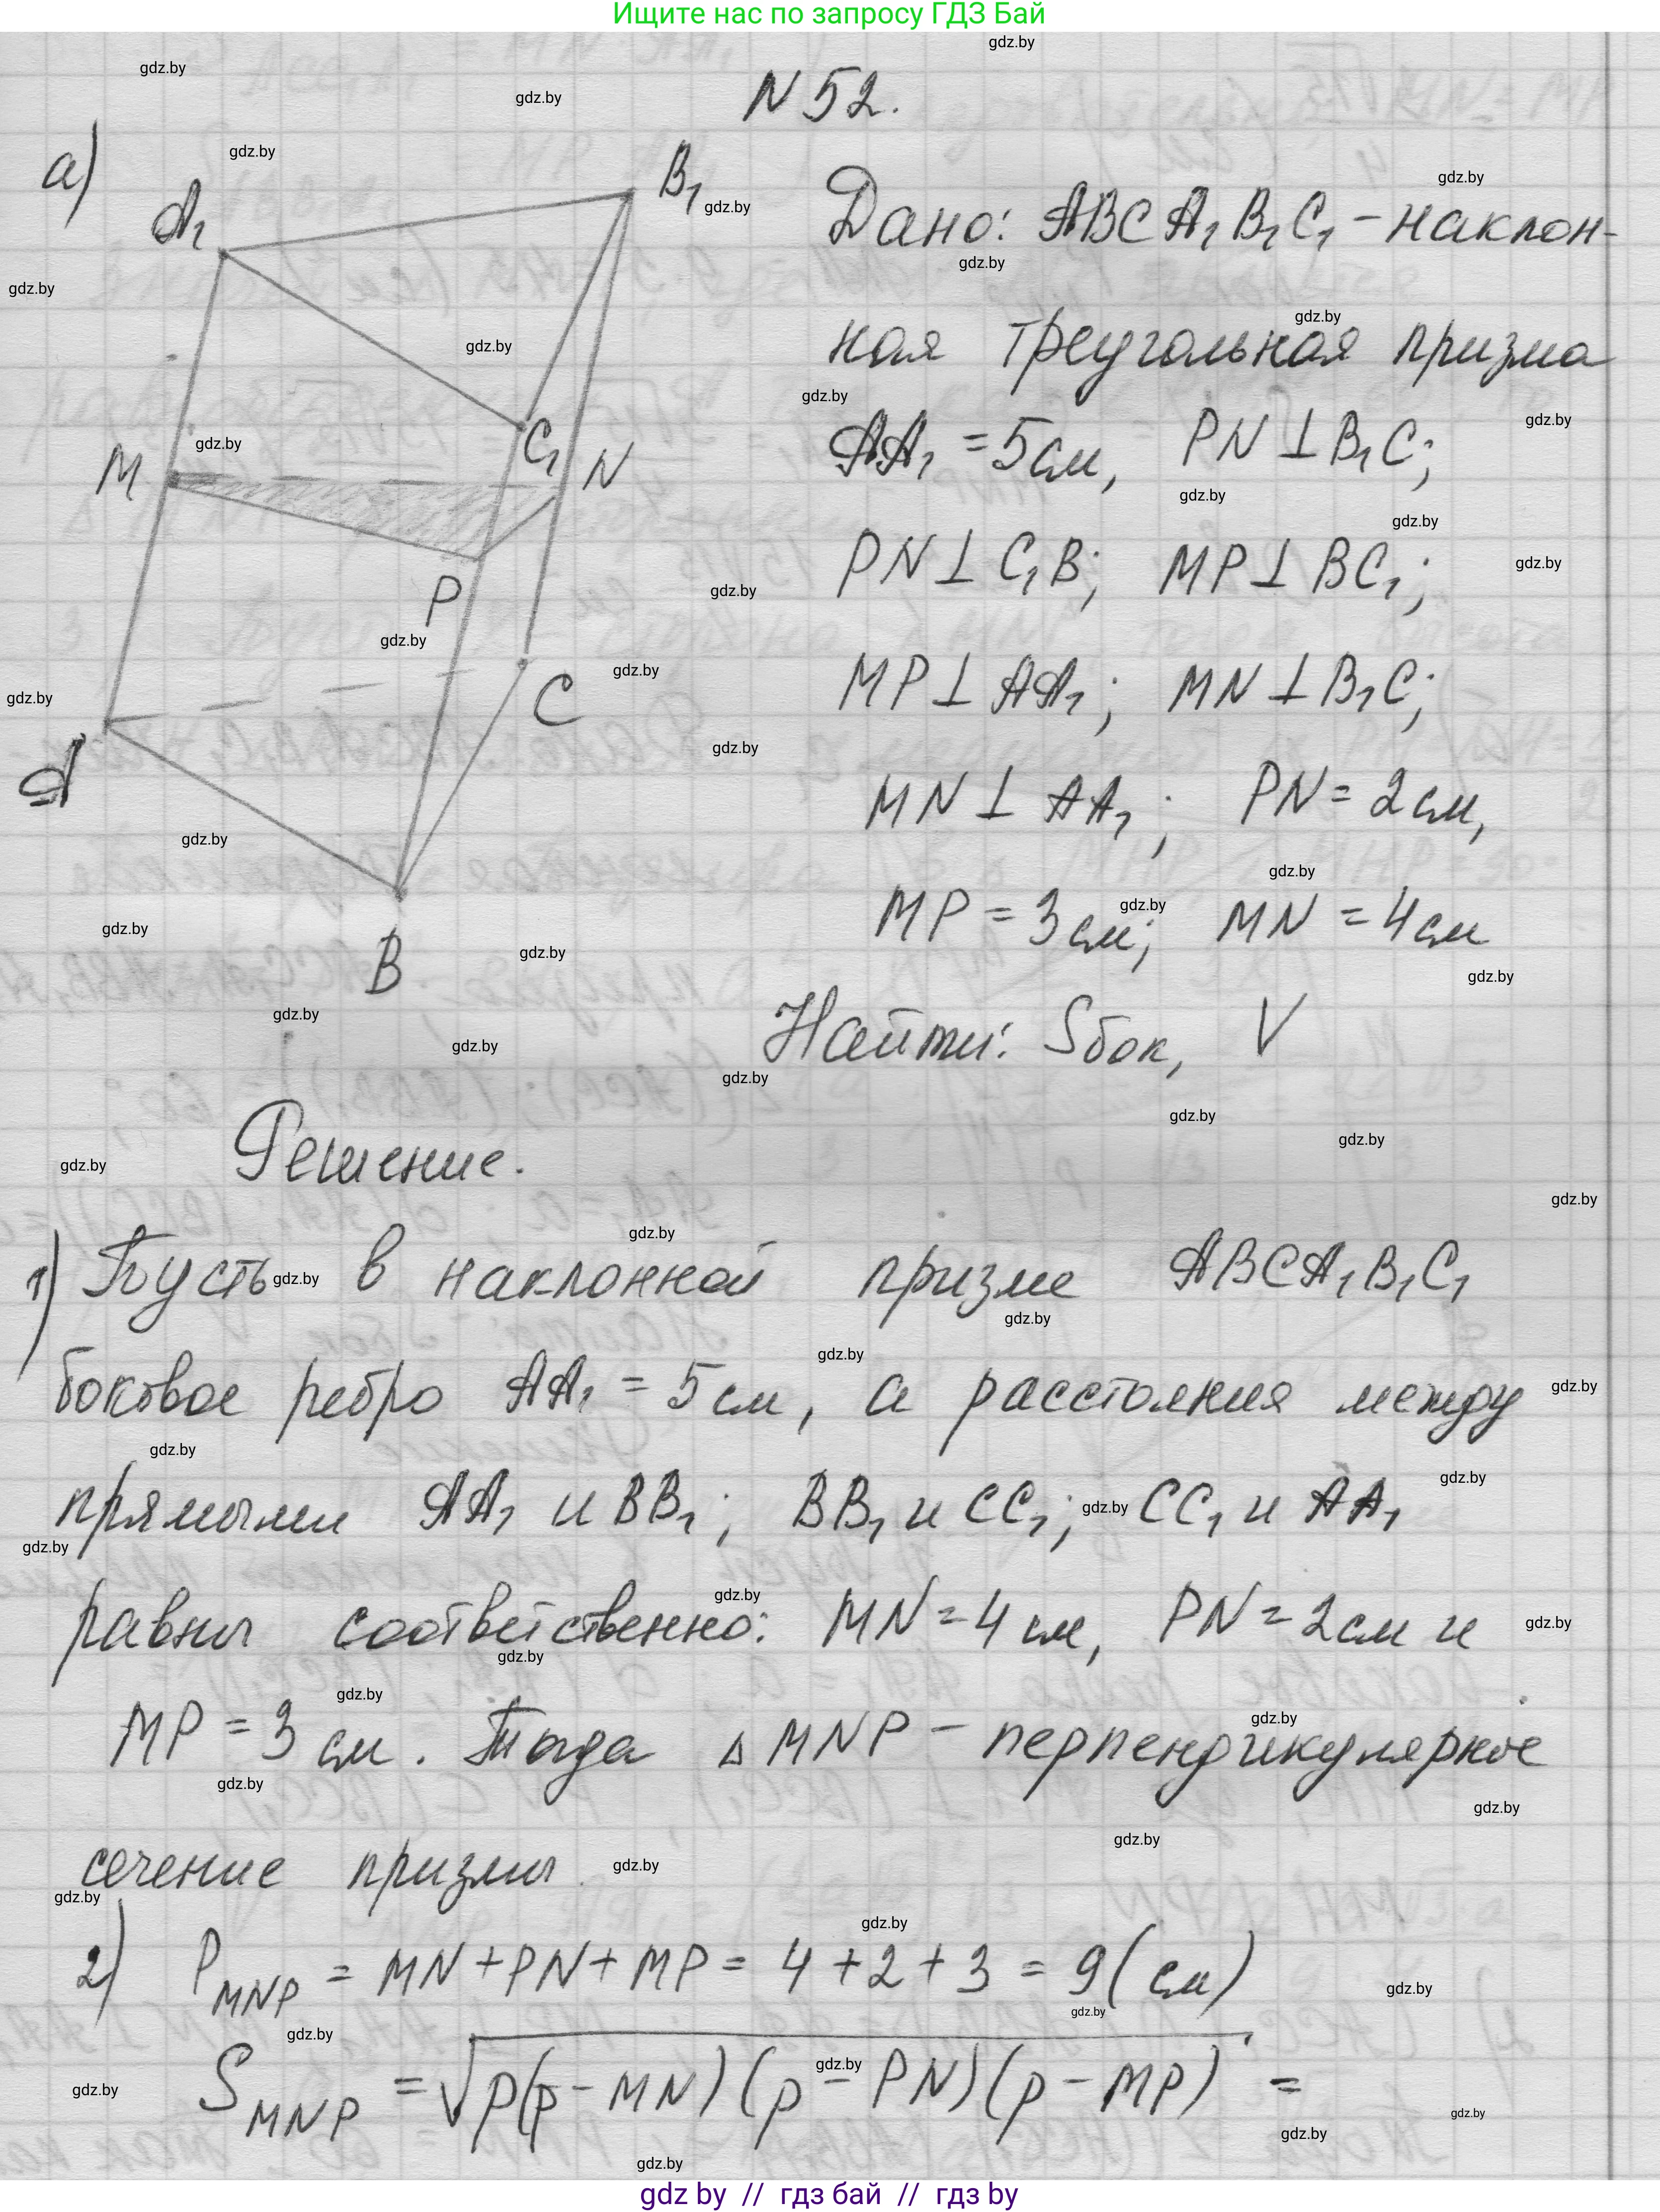 Ищите нас по запросу ГДЗ Бай
N 52.
а)
A₁
B₁
C₁
M
N
P
C
A
B
Дано: ABCA₁B₁C₁ - наклон-
ная треугольная призма
AA₁ = 5см, PN ⊥ B₁C;
PN ⊥ C₁B; MP ⊥ BC₁;
MP ⊥ AA₁; MN ⊥ B₁C;
MN ⊥ AA₁; PN = 2см,
MP = 3см; MN = 4см
Найти: Sбок, V
Решение.
1) Пусть в наклонной призме ABCA₁B₁C₁
боковое ребро AA₁ = 5см, а расстояния между
прямыми AA₁ и BB₁; BB₁ и CC₁; CC₁ и AA₁
равны соответственно: MN = 4 см, PN = 2см и
MP = 3 см. Тогда △ MNP - перпендикулярное
сечение призмы.
2) P_MNP = MN + PN + MP = 4 + 2 + 3 = 9 (см)
S_MNP = √p(p - MN)(p - PN)(p - MP) =
gdz by // гдз бай // гдз by